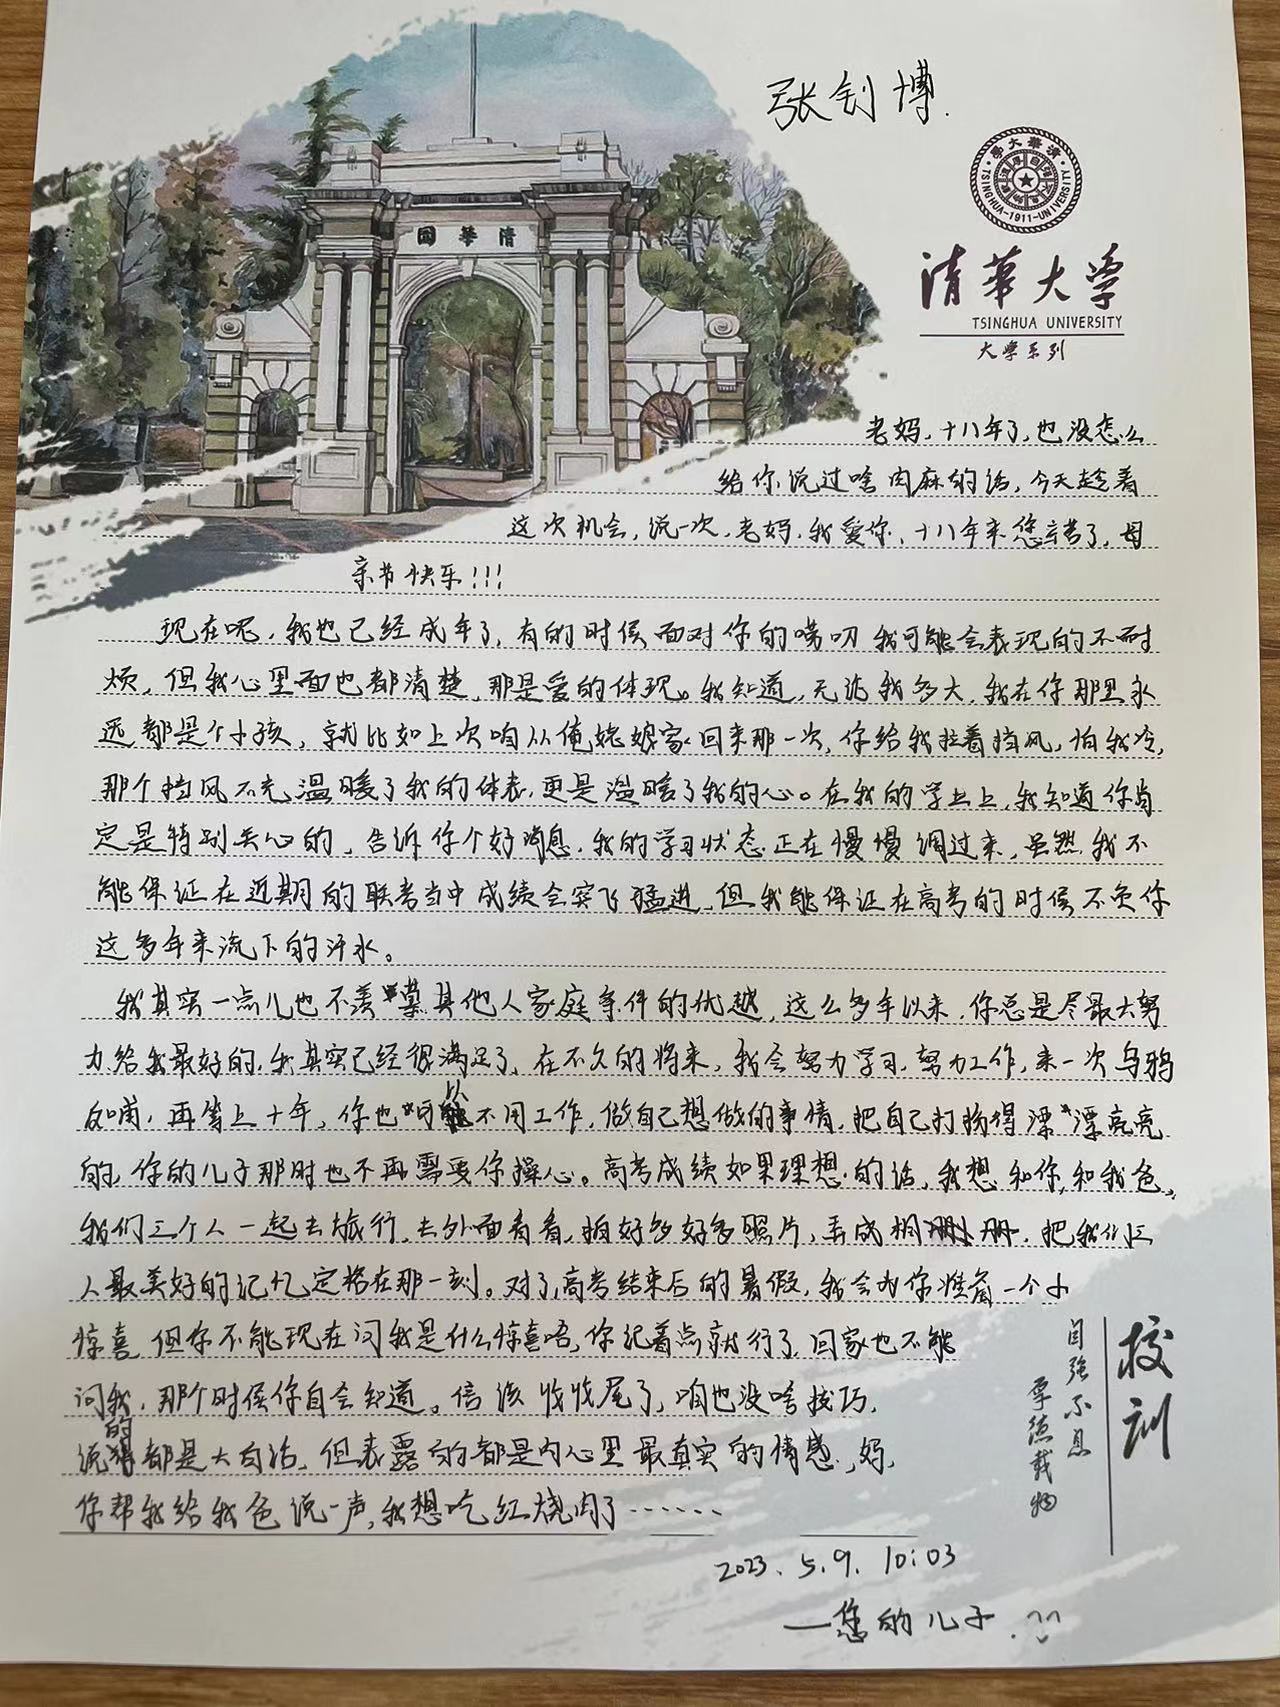 张钊博
清華大學
TSINGHUA-1911-UNIVERSITY
清華園
清華大学
TSINGHUA UNIVERSITY
大学系列
老妈，十八年了，也没怎么
给你说过啥肉麻的话，今天趁着
这次机会，说一次，老妈，我爱你，十八年来您辛苦了，母
亲节快乐！！！
现在呢，我也已经成年了，有的时候面对你的唠叨我可能会表现的不耐
烦，但我心里面也都清楚，那是爱的体现。我知道，无论我多大，我在你那里永
远都是个小孩，就比如上次咱从俺姥娘家回来那一次，你给我拉着挡风，怕我冷，
那个挡风不光温暖了我的体表，更是温暖了我的心。在我的学业上，我知道你肯
定是特别关心的，告诉你个好消息，我的学习状态正在慢慢调过来，虽然我不
能保证在近期的联考当中成绩会突飞猛进，但我能保证在高考的时候不负你
这多年来流下的汗水。
我其实一点儿也不羡慕其他人家庭条件的优越，这么多年以来，你总是尽最大努
力给我最好的，我其实已经很满足了，在不久的将来，我会努力学习，努力工作，来一次乌鸦
反哺，再等上十年，你也可以不用工作，做自己想做的事情，把自己打扮得漂漂亮亮
的，你的儿子那时也不再需要你操心。高考成绩如果理想的话，我想和你，和我爸，
我们三个人一起去旅行，去外面看看，拍好多好多照片，弄成相册，把我们三
人最美好的记忆定格在那一刻。对了，高考结束后的暑假，我会为你准备一个小
惊喜，但你不能现在问我是什么惊喜唔，你记着点就行了，回家也不能
问我，那个时候你自会知道。信该收收尾了，咱也没啥技巧，
说的都是大白话，但表露的都是内心里最真实的情感，妈，
你帮我给我爸说一声，我想吃红烧肉了……
2023.5.9. 10:03
—您的儿子
校训
自强不息
厚德载物